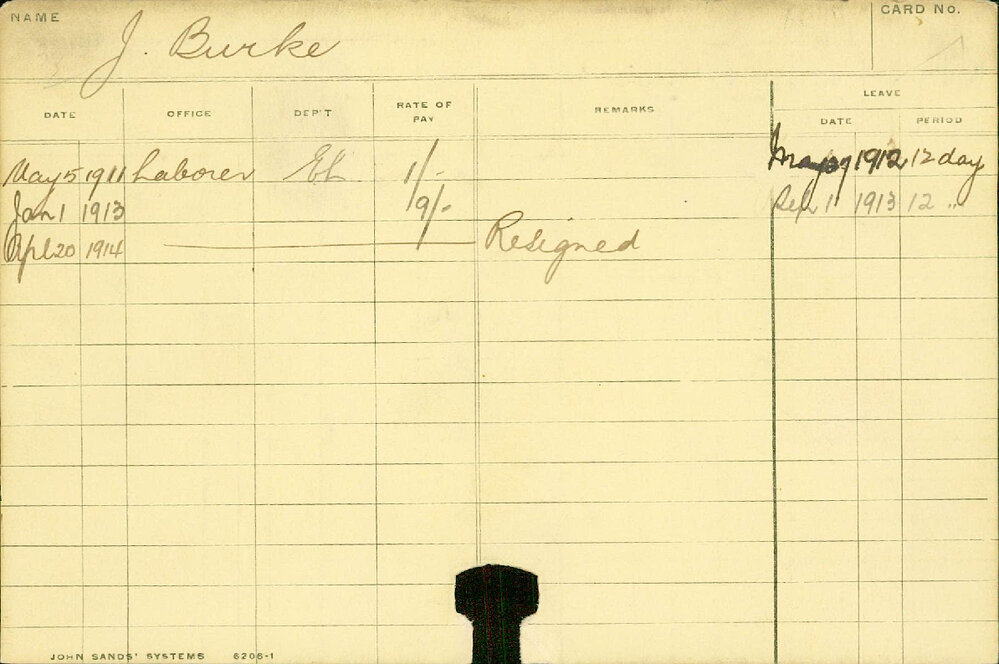 NAME J. Burke CARD No.
LEAVE
DATE OFFICE DEP'T RATE OF PAY REMARKS DATE PERIOD
May 5 1911 Laborer EL 1/- May 1912 12 day
Jan 1 1913 9/- Sep 1 1913 12 "
Apl 20 1914 Resigned
JOHN SANDS' SYSTEMS 6206-1